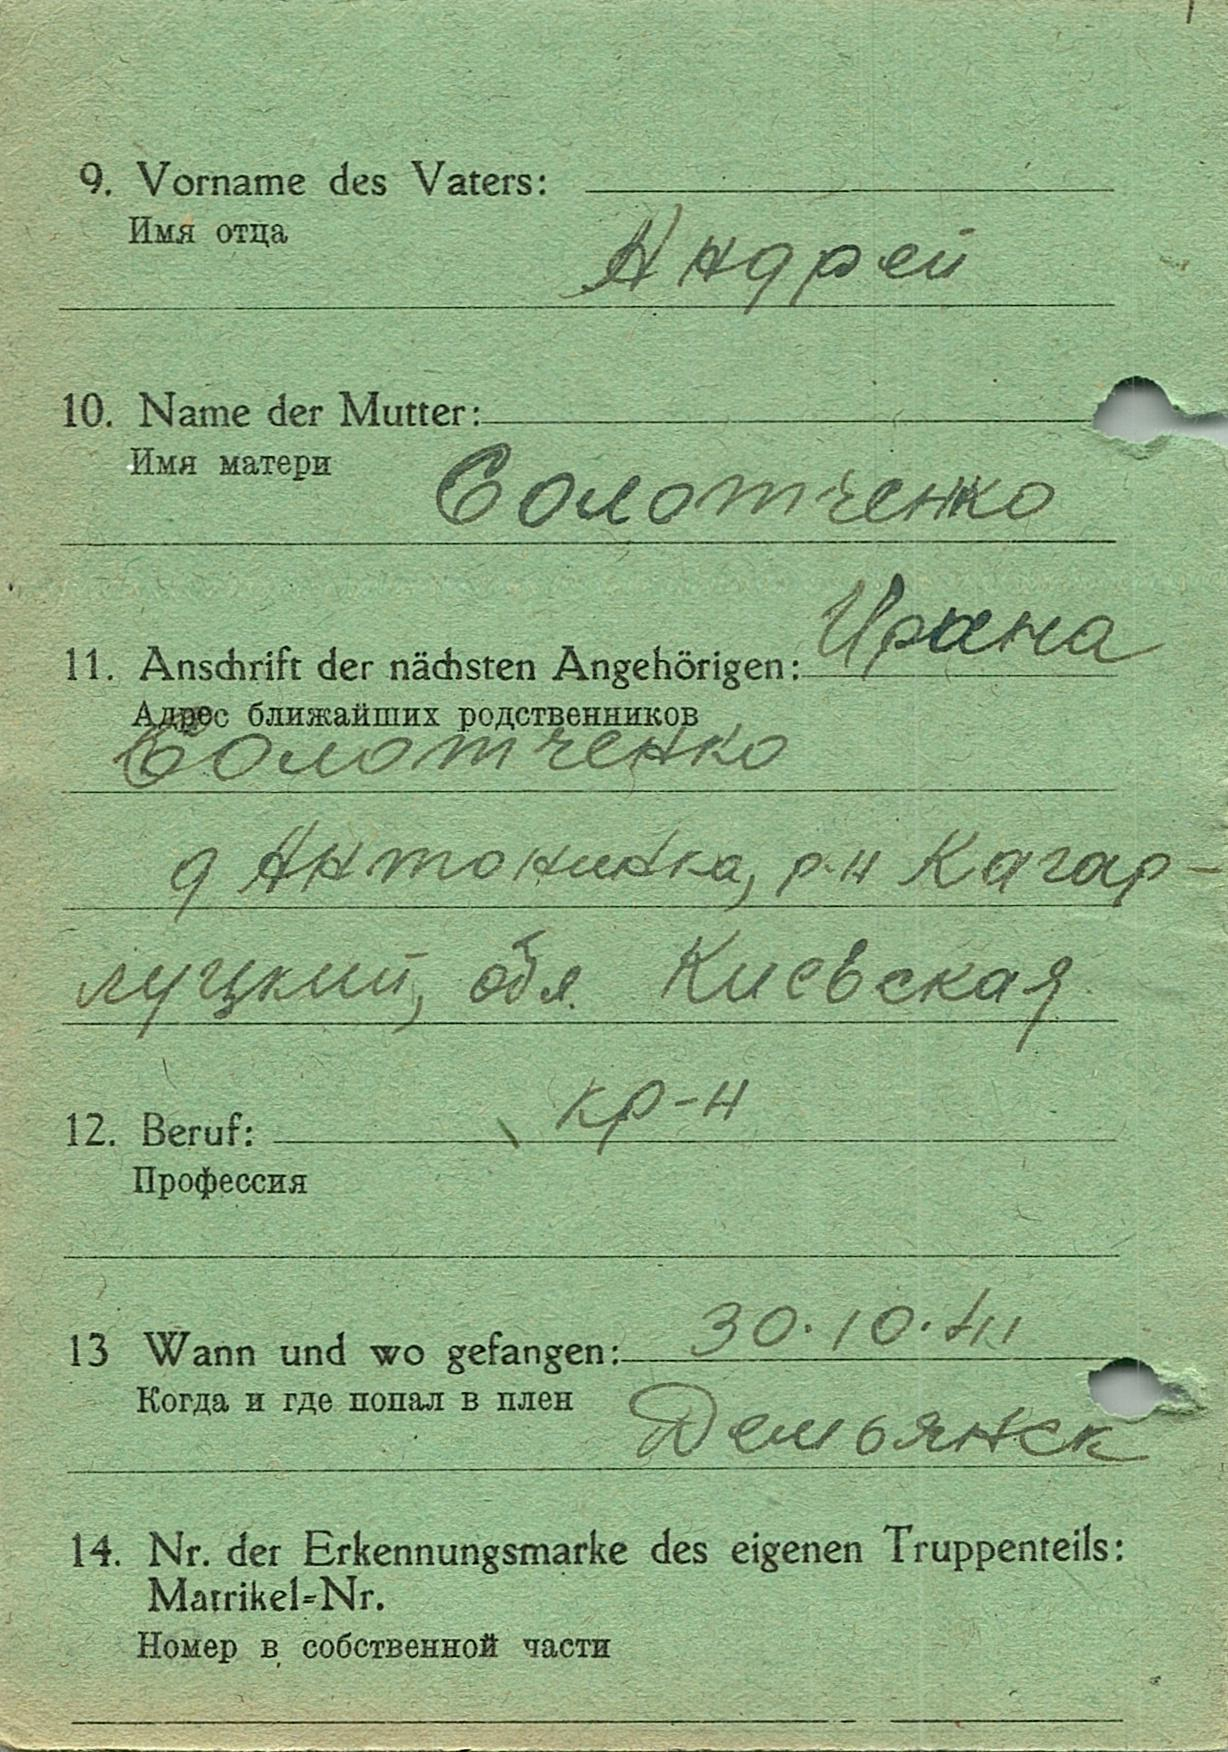 9. Vorname des Vaters:
Имя отца
Андрей
10. Name der Mutter:
Имя матери
Солотченко
Ирина
11. Anschrift der nächsten Angehörigen:
Адрес ближайших родственников
Солотченко
д Антонинка, р-н Кагар-
луцкий, обл. Киевская
кр-н
12. Beruf:
Профессия
30.10.41
13 Wann und wo gefangen:
Когда и где попал в плен
Демьянск
14. Nr. der Erkennungsmarke des eigenen Truppenteils:
Matrikel-Nr.
Номер в собственной части